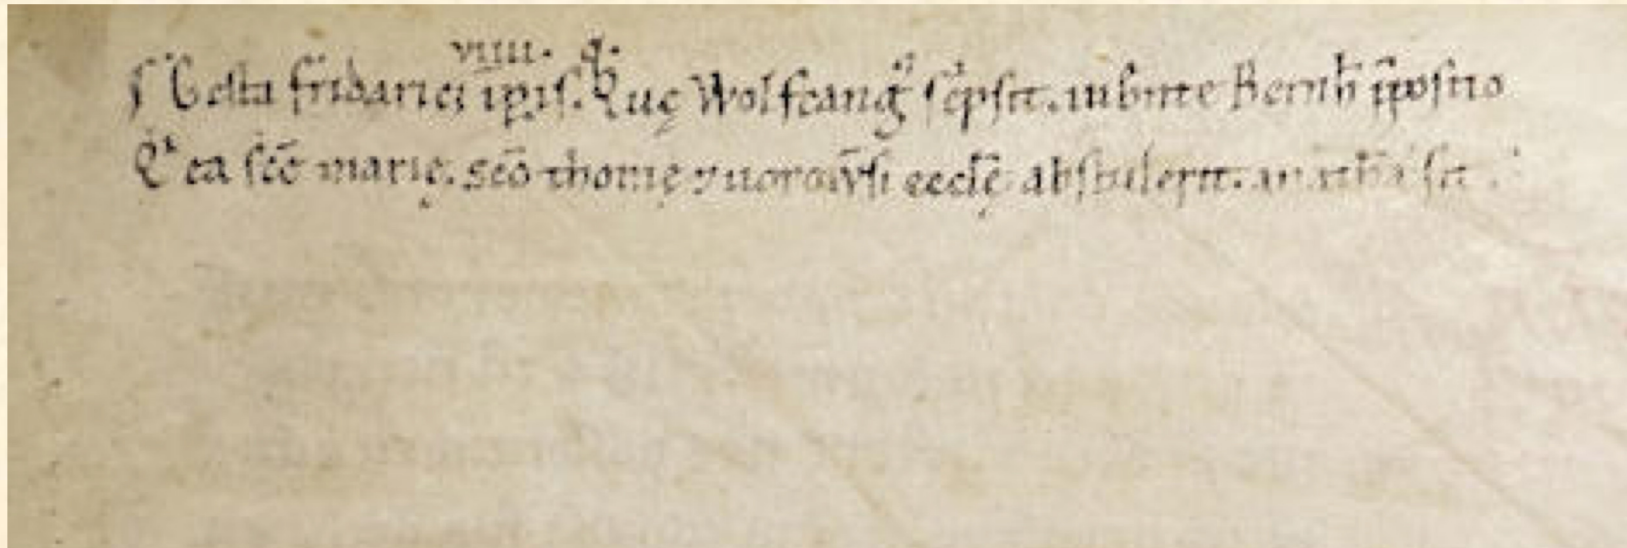 viiii. q̈.
S̈ Gesta fridarici ip̄is. Quę Wolfcangꝰ scͥpsit. iub̄nte Bernh̄ p̄posito
Qͥ ea scē marię. scō thomę ⁊ uorow̄si ecclę̄ abstulerit. anath̄a sit.